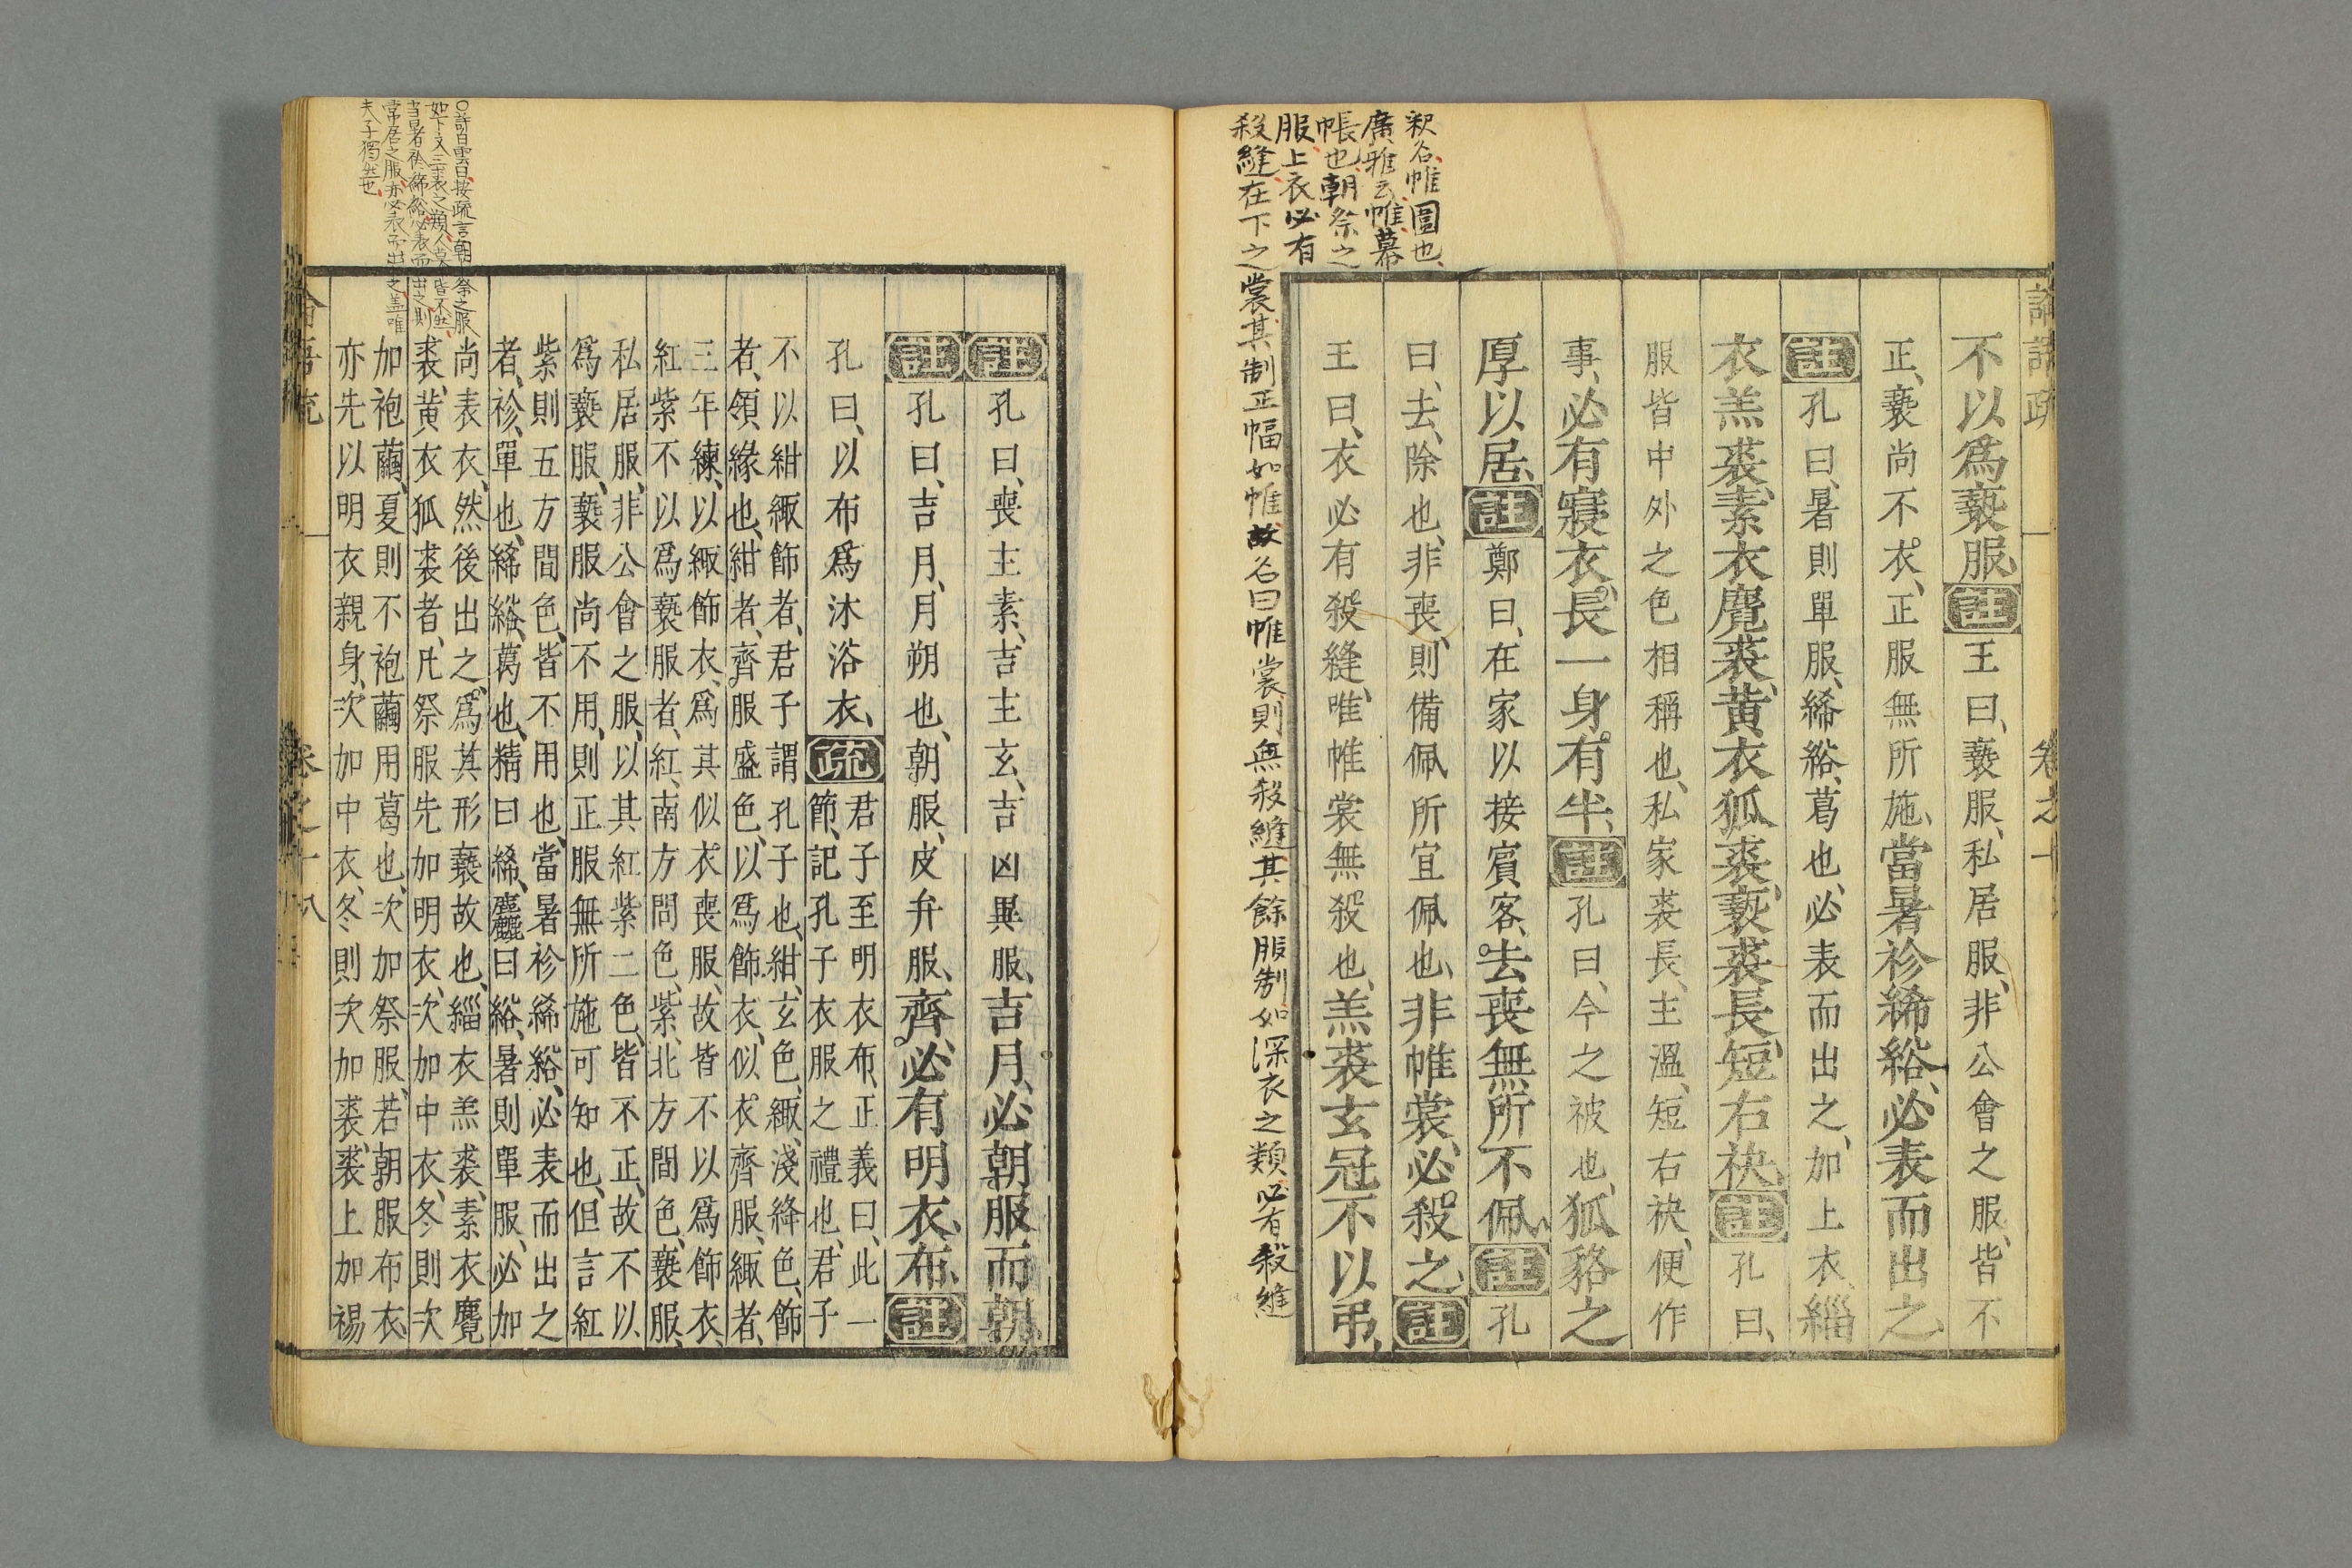 釈名、帷圍也、
廣雅云帷、幕
帳也、朝祭之
服上衣必有
殺縫在下之裳、其制正幅如帷、故名曰帷裳、則無殺縫、其餘服制如深衣之類、必有殺縫
不以爲褻服、註王曰、褻服、私居服、非公會之服、皆不
正、褻尚不衣、正服無所施、當暑袗絺綌、必表而出之、
註孔曰、暑則單服、絺綌、葛也、必表而出之、加上衣、緇
衣羔裘、素衣麑裘、黄衣狐裘、褻裘長、短右袂、註孔曰、
服皆中外之色相稱也、私家裘長、主溫、短右袂、便作
事、必有寢衣、長一身有半、註孔曰、今之被也、狐貉之
厚以居、註鄭曰、在家以接賓客、去喪無所不佩、註孔
曰、去、除也、非喪、則備佩所宜佩也、非帷裳、必殺之、註
王曰、衣必有殺縫、唯帷裳無殺也、羔裘玄冠不以弔、
○許白雲曰按疏言朝祭之服
如下文三表之類、人莫皆不然、
當暑袗絺綌必表而出之、則
常居之服亦必表而出之、盖唯
夫子獨然也
註孔曰、喪主素、吉主玄、吉凶異服、吉月、必朝服而朝、
註孔曰、吉月、月朔也、朝服、皮弁服、齊、必有明衣、布、註
孔曰、以布爲沐浴衣、疏君子至明衣布、正義曰、此一
節、記孔子衣服之禮也、君子
不以紺緅飾者、君子謂孔子也、紺、玄色、緅、淺絳色、飾
者、領緣也、紺者、齊服盛色、以爲飾衣、似衣齊服、緅者、
三年練、以緅飾衣、爲其似衣喪服、故皆不以爲飾衣、
紅紫不以爲褻服者、紅、南方間色、紫、北方間色、褻服、
私居服、非公會之服、以其紅紫二色、皆不正、故不以
爲褻服、褻服尚不用、則正服無所施可知也、但言紅
紫則五方間色、皆不用也、當暑袗絺綌、必表而出之
者、袗、單也、絺綌、葛也、精曰絺、麤曰綌、暑則單服、必加
尚表衣、然後出之、爲其形褻故也、緇衣羔裘、素衣麑
裘、黄衣狐裘者、凡祭服先加明衣、次加中衣、冬則次
加袍繭、夏則不袍繭用葛也、次加祭服、若朝服布衣、
亦先以明衣親身、次加中衣、冬則次加裘、裘上加裼